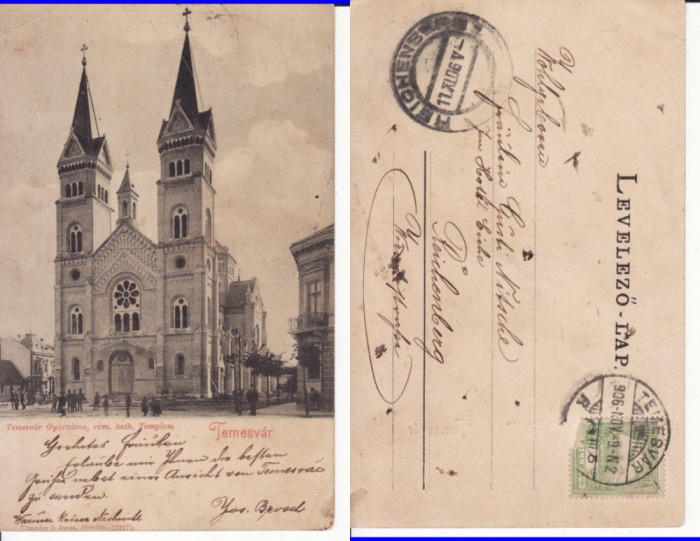 Temesvár Gyárváros, róm. kath. Templom
Temesvár
Geehrtes Fräulein
erlaube mir Ihnen die besten
Grüße nebst einer Ansicht von Temesvár
zu senden
Warum keine Nachricht
Jos. Brosch
REICHENBERG
11.XI.06
LEVELEZŐ-LAP.
Wohlgeboren
Fräulein Gusti Nitsche
Hotel Eiche
Reichenberg
TEMESVÁR
906 NOV. -9. N 2